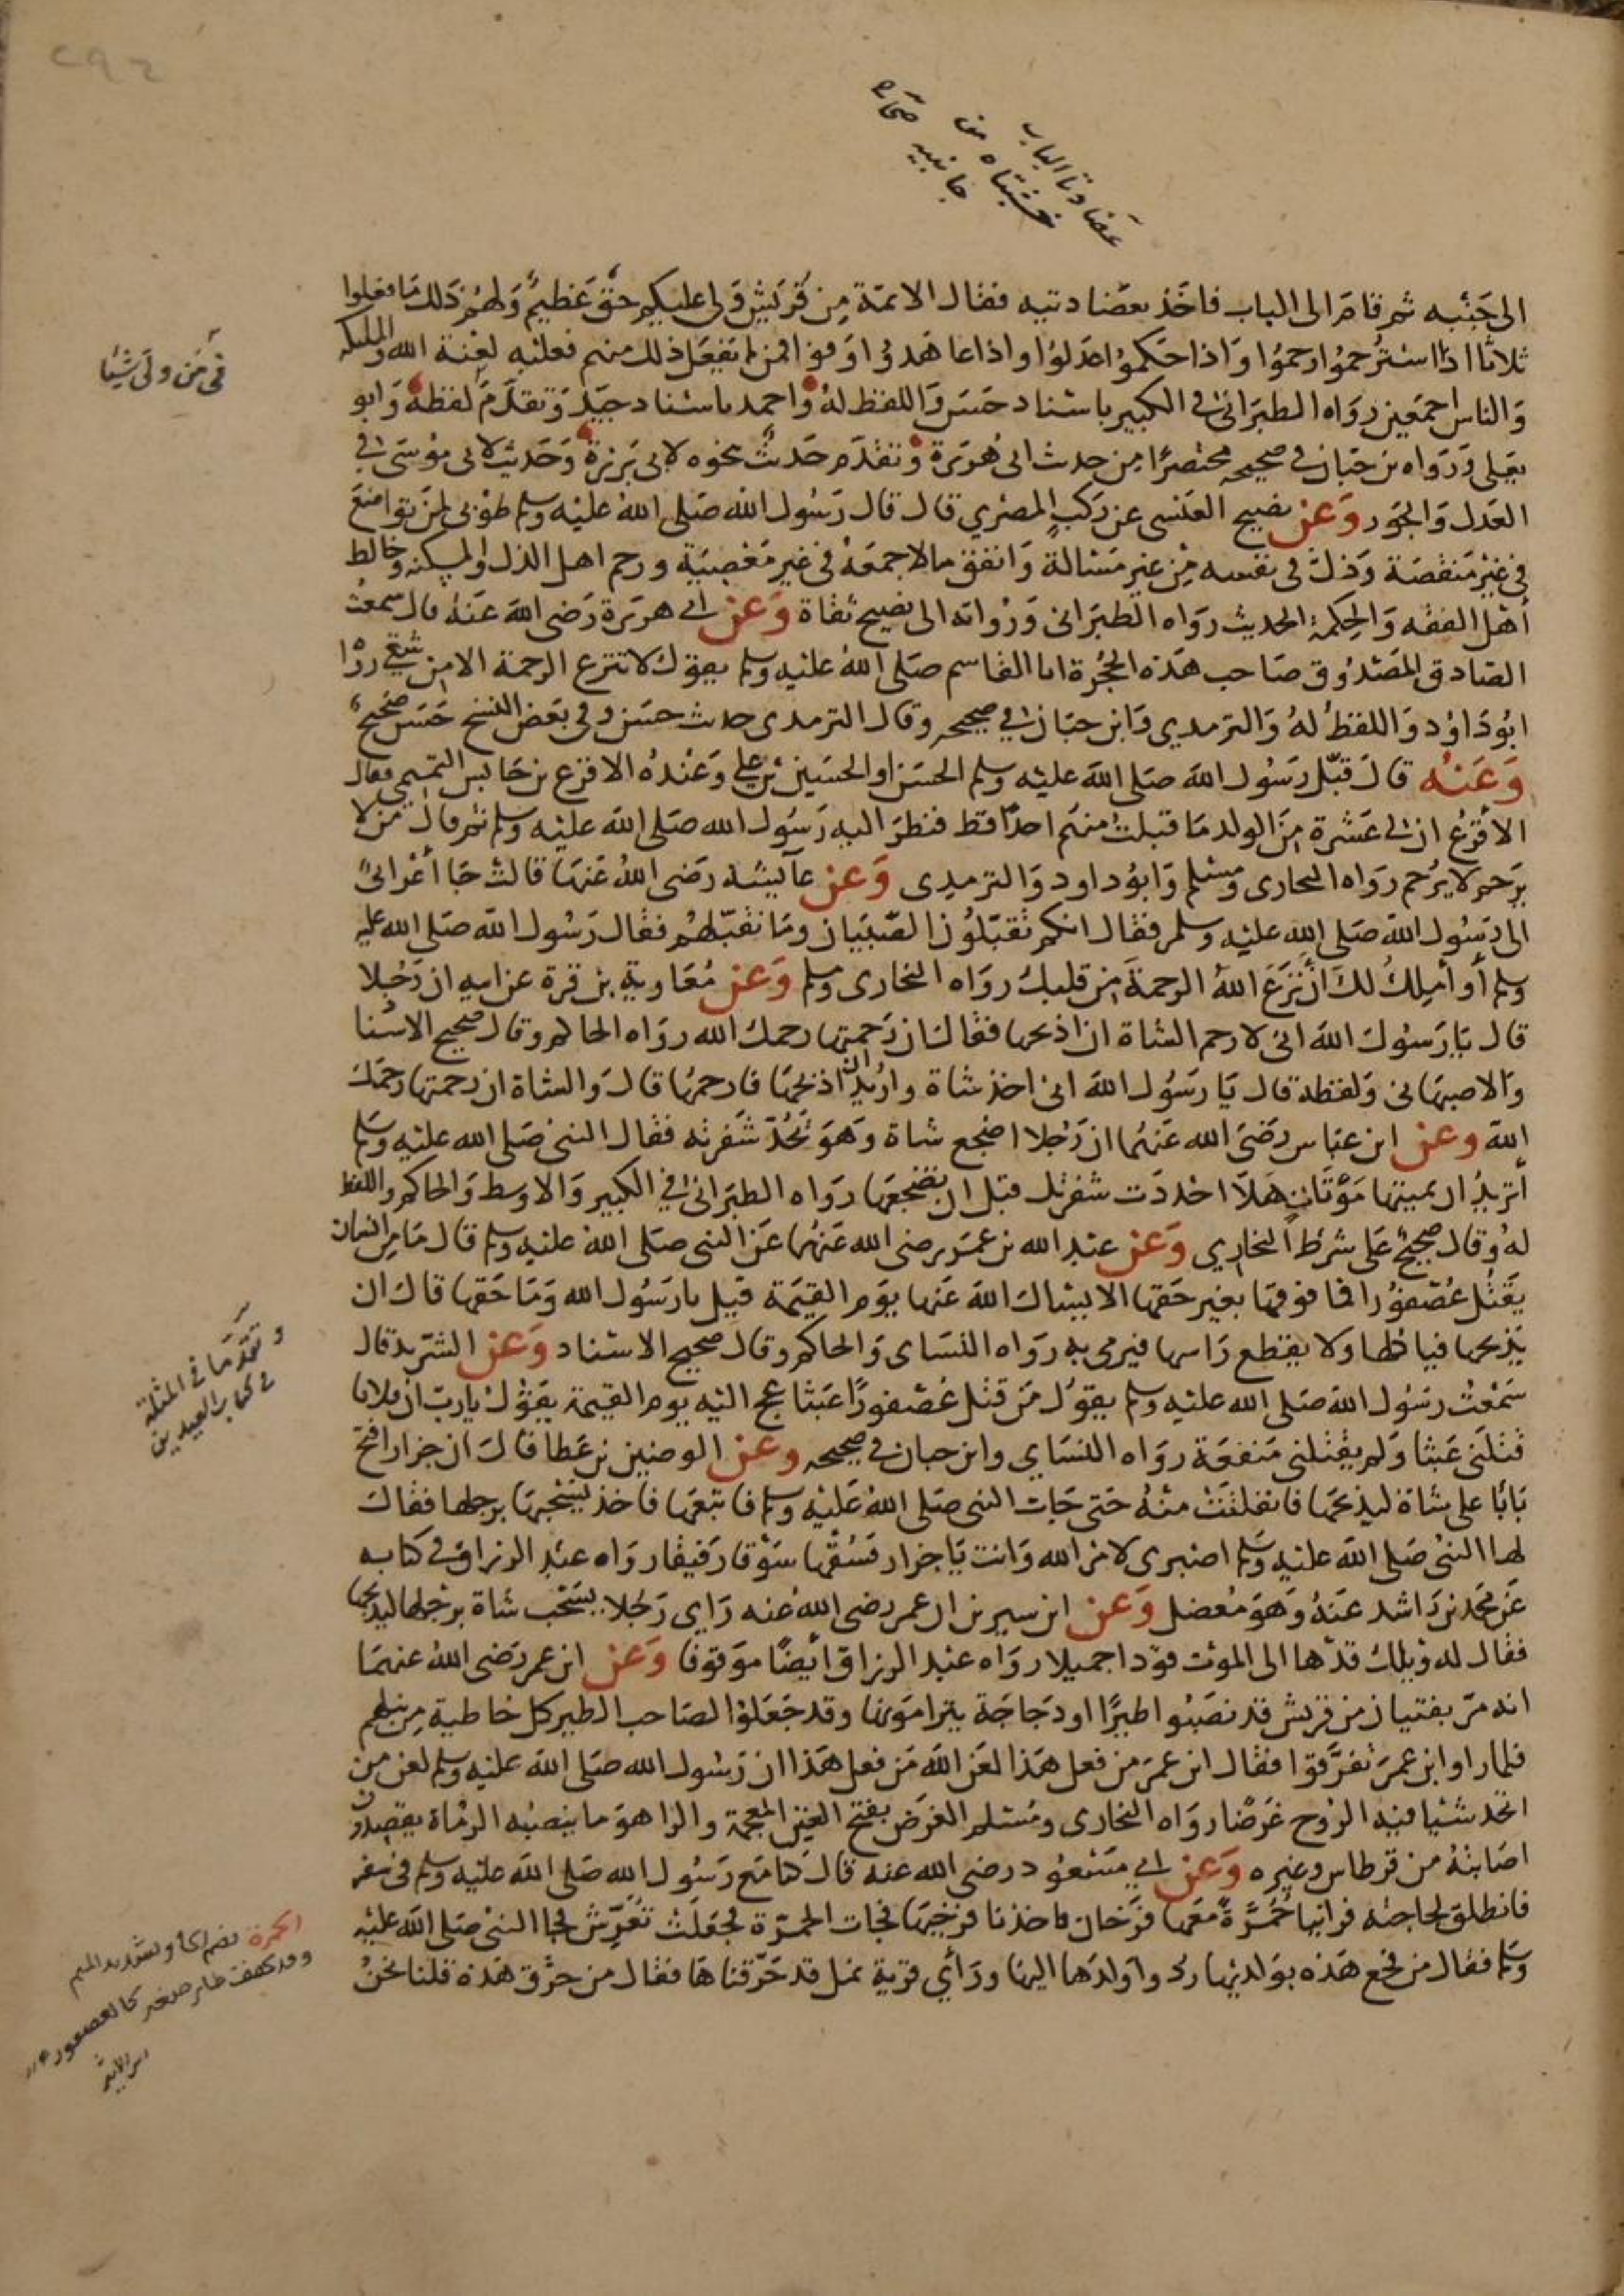 ٢٩٤
عضادتا الباب
خشبتاه من
جانبيه صحاح
الى جَنْبه ثم قامَ الى الباب فاخَذ بعضَادتيه فقال الائمّة مِن قُرَيش وَلى عليكم حقّ عَظيمٌ وَلهُم ذلكَ مَا فعلوا
ثلاثا اذا اسْتُرحمُوا رحمُوا وَاذا حَكمُوا عدَلوُا واذا عاهَدوُا اوَفوا فمن لم يَفعَل ذلك منهم فعليْه لعْنة الله والمليكه
وَالناس اجمَعين روَاه الطبرَانى في الكبير باسْناد حَسَن وَاللفظ لهُ وَاحمد باسْناد جيّد وَتقدَّمَ لفظهُ وَابو
يعَلى وَرَوَاه بن حبّان في صحيحه مختصرًا من حديث ابى هُريَرة وَتقدَّم حَديثُ نحوه لابى بَرزة وَحَديث لابى موُسَى في
العَدل وَالجَوَر وَعَن نصيح العَنسى عن رَكب المصْري قال قال رَسُول الله صَلى اللهُ عليْه وسلم طوْبى لمنَ تواضعَ
في غيْر مَنقصَة وَذلّ في نفسه مِنْ غير مَسْئالة وَانفق مالا جمعَهُ في غير مَعْصِيَة ورحم اهل الذل والمسكنه وخالط
أهْل الفقْه وَالحِكمة الحديث روَاه الطبرَانى وَرُواته الى نصيح ثقاة وَعَن ابى هريرة رَضى الله عَنهُ قال سَمعتُ
الصّادق المصَدُوق صَاحب هَذه الحُجْرة ابا القاسم صَلى اللهُ عليْه وسلم يقوَل لا تنزع الرحمة الا من شقي روَا
ابُو دَاوُد وَاللفظُ لهُ وَالترمدى وَابن حبّان في صحيحه وقال الترمدى حديث حسَن وفي بعَض النسخ حَسَن صَحيحُ
وَعَنْه قالَ قبّل رسَوُل اللهَ صَلى اللهَ عليْه وسلم الحسَن اوالحسَين بْن على وَعَنْدهُ الاقرَع بن حَابس التميمى فقال
الاقرَعُ ان لى عَشْرة مِنَ الولد مَا قبلتُ منهَم احدًا قط فنظرَ اليه رَسُول الله صَلى اللهَ عليْه وسلم ثم قال مَن لا
يرَحم لا يرُحم روَاه البحارى ومُسْلم وَابوُ داود وَالترمدى وَعَن عآيشة رَضى اللهُ عَنهَا قالتْ جَا أعْرابىٌ
الى رَسُول اللهَ صَلى الله عليْه وسلم فقال انكم تُقبّلُون الصّبيَان ومَا نقبّلهُم فقال رَسُول اللهَ صَلى الله عليه
وسلم أو أملِكُ لكَ أنْ نزَعَ اللهُ الرحمةَ من قلبكُ روَاه البخارى ومسلم وَعَن مُعَاوية بن قرة عن ابيه ان رَجُلا
قال يَارَسوُلَ اللهَ انى لارحم الشاة ان اذبحها فقالَ ان رَحمتها رحمكَ الله روَاه الحاكم وقال صحيح الاسْنا
وَالاصبهَانى وَلفظه قال يَا رسَوُل اللهَ انى اخذ شاة واريْدُ ان اذبحُهَا فارحمهُا قالَ وَالشاة ان رحمتها رَحمَكَ
اللهَ وعن ابن عبّاس رَضىَ الله عَنهُما ان رَجُلا اضجع شاة وَهوَ تحُدّ شَفرتُه فقال النبى صَلى الله عليْه وَسَلم
أتريْدُ ان تميتها مَوْتَاتٍ هَلاّ احْددَت شفرتك قبْل ان تضْجعهَا روَاه الطبرَانى في الكبير وَالاوسط وَالحاكم واللفظ
لهُ وَقال صحيحٌ عَلى شرط البخاري وَعَن عبْد الله بن عمَر رضى الله عَنهُما عَن النبى صَلى اللهُ عليْه وسلم قال مَا مِن انسان
يَقتُل عُصْفوُرا فما فوقهَا بغير حَقها الا يسْاله اللهَ عَنها يوَم القيَمة قيل يارَسُول الله وَمَا حَقها قالَ ان
يَذبحها فياكلها ولا يقطع رَاسها فيرمى به روَاه النسَاى وَالحاكم وقال صحيح الاسْناد وَعَن الشرّيد قال
سَمعْتُ رسَوُل اللهَ صَلى الله عليْه وسلم يقوَل مَن قتل عُصْفورًا عَبثًا عج اليْه يوم القيمة يقوُل يارب ان فلانا
قتلنى عَبثا وَلم يقْتلنى مَنفعَة روَاه النسَاي وابن حبان في صحيحه وعَن الوضين بن عَطا قالَ ان جزارا فتح
بَابًا على شاة ليذبحَها فانفلتَتْ منْهُ حَتى جَات النبى صَلى اللهُ عَليْه وسلم فاتبعَها فاخذ يسْحبُهَا برجلها فقالَ
لها النبى صَلى اللهَ عليْه وَسَلم اصْبرى لامْر الله وَانت يَا جزار فسُقْها سَوْقا رَفيقا روَاه عبْد الرزاق في كتابه
عَن محمَد بن رَاشد عَنهُ وَهوَ مُعضل وَعَن ابن سيرين ان عمر رضى اللهُ عنه رَاى رَجُلا يسْحَبُ شاة برجْلها ليذبحها
فقال له وَيلكَ قدْها الى الموْت قوَدا جميلا روَاه عبْد الرزاق أيضًا موَقوفا وَعَن ابن عمر رَضى اللهُ عنهمَا
انه مَرّ بفتيان من قريش قد نصَبوُا طيرًا او دَجاجَة يترامَونها وقد جَعَلوْا لصَاحب الطير كل خاطية مِن نبلهم
فلما راوا ابن عمَرَ تفرَّقوا فقال ابن عمَر من فعل هَذا لعَن اللهَ مَن فعل هَذا ان رَسُول الله صَلى اللهَ عليْه وسلم لعن من
اتخذ شئيا فيْه الرُوح غَرَضًا روَاه البخارى ومُسْلم الغرَض بفتح الغين المعجمة والرا هوَ ما ينصبُه الرمُاة يقصدون
اصَابتهُ من قرطاس وغيره وَعَن ابى مَسْعوُد رضى الله عنه قالَ كنا مَع رَسُول الله صَلى اللهَ عليْه وسلم في سفر
فانطلق لحاجته فراينا حُمَّرَةً معَها فَرَخان فاخذنا فرَخيهَا فجات الحمَرّة فجعَلَتْ تُعَرِّش فجا النبى صَلى اللهَ عليْه
وَسلم فقال من فجع هَذه بوَلديْها ردوا وَلدَها اليهَا ورَأي قرَية نمل قد حَرّقناهَا فقال من حرَّق هَذه قلنا نحْنُ
في مَن ولىَ شَيْئا
وتقدّمَا في المثلة
في كتاب العيدين
الحمرة بضم الحا وتشديد الميم
وقد تخفف طاير صغير كالعصفور
ابن الاثير